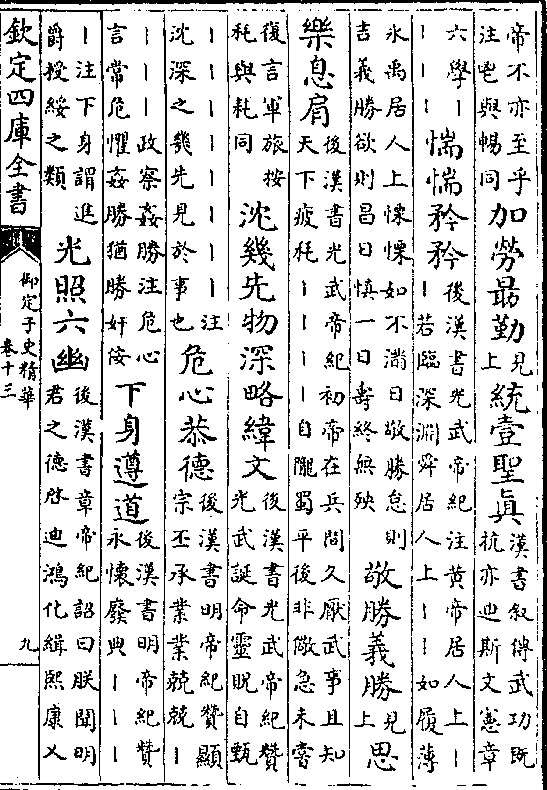 帝不亦至乎
注鬯與暢同
加勞最勤
見上
統壹聖真
漢書敘傳武功既
抗亦迪斯文憲章
六學丨
丨丨丨
惴惴矜矜
後漢書光武帝紀注黃帝居人上丨
丨若臨深淵舜居人上丨丨如履薄
冰禹居人上慄慄如不滿日敬勝怠則
吉義勝欲則昌日慎一日壽終無殃
敬勝義勝
見上
思
樂息肩
後漢書光武帝紀初帝在兵間久厭武事且知
天下疲耗丨丨丨丨自隴蜀平後非儆急未嘗
復言軍旅按
秏與耗同
沈幾先物深略緯文
後漢書光武帝紀贊
光武誕命靈貺自甄
丨丨丨丨丨丨丨丨注
沈深之幾先見於事也
危心恭德
後漢書明帝紀贊顯
宗丕承業業兢兢丨
丨丨丨政察姦勝注危心
言常危懼姦勝猶勝奸佞
下身遵道
後漢書明帝紀贊
永懷廢典丨丨丨
丨注下身謂進
爵授綏之類
光照六幽
後漢書章帝紀詔曰朕聞明
君之德啓迪鴻化緝熙康乂
欽定四庫全書
御定子史精華
卷十三
九